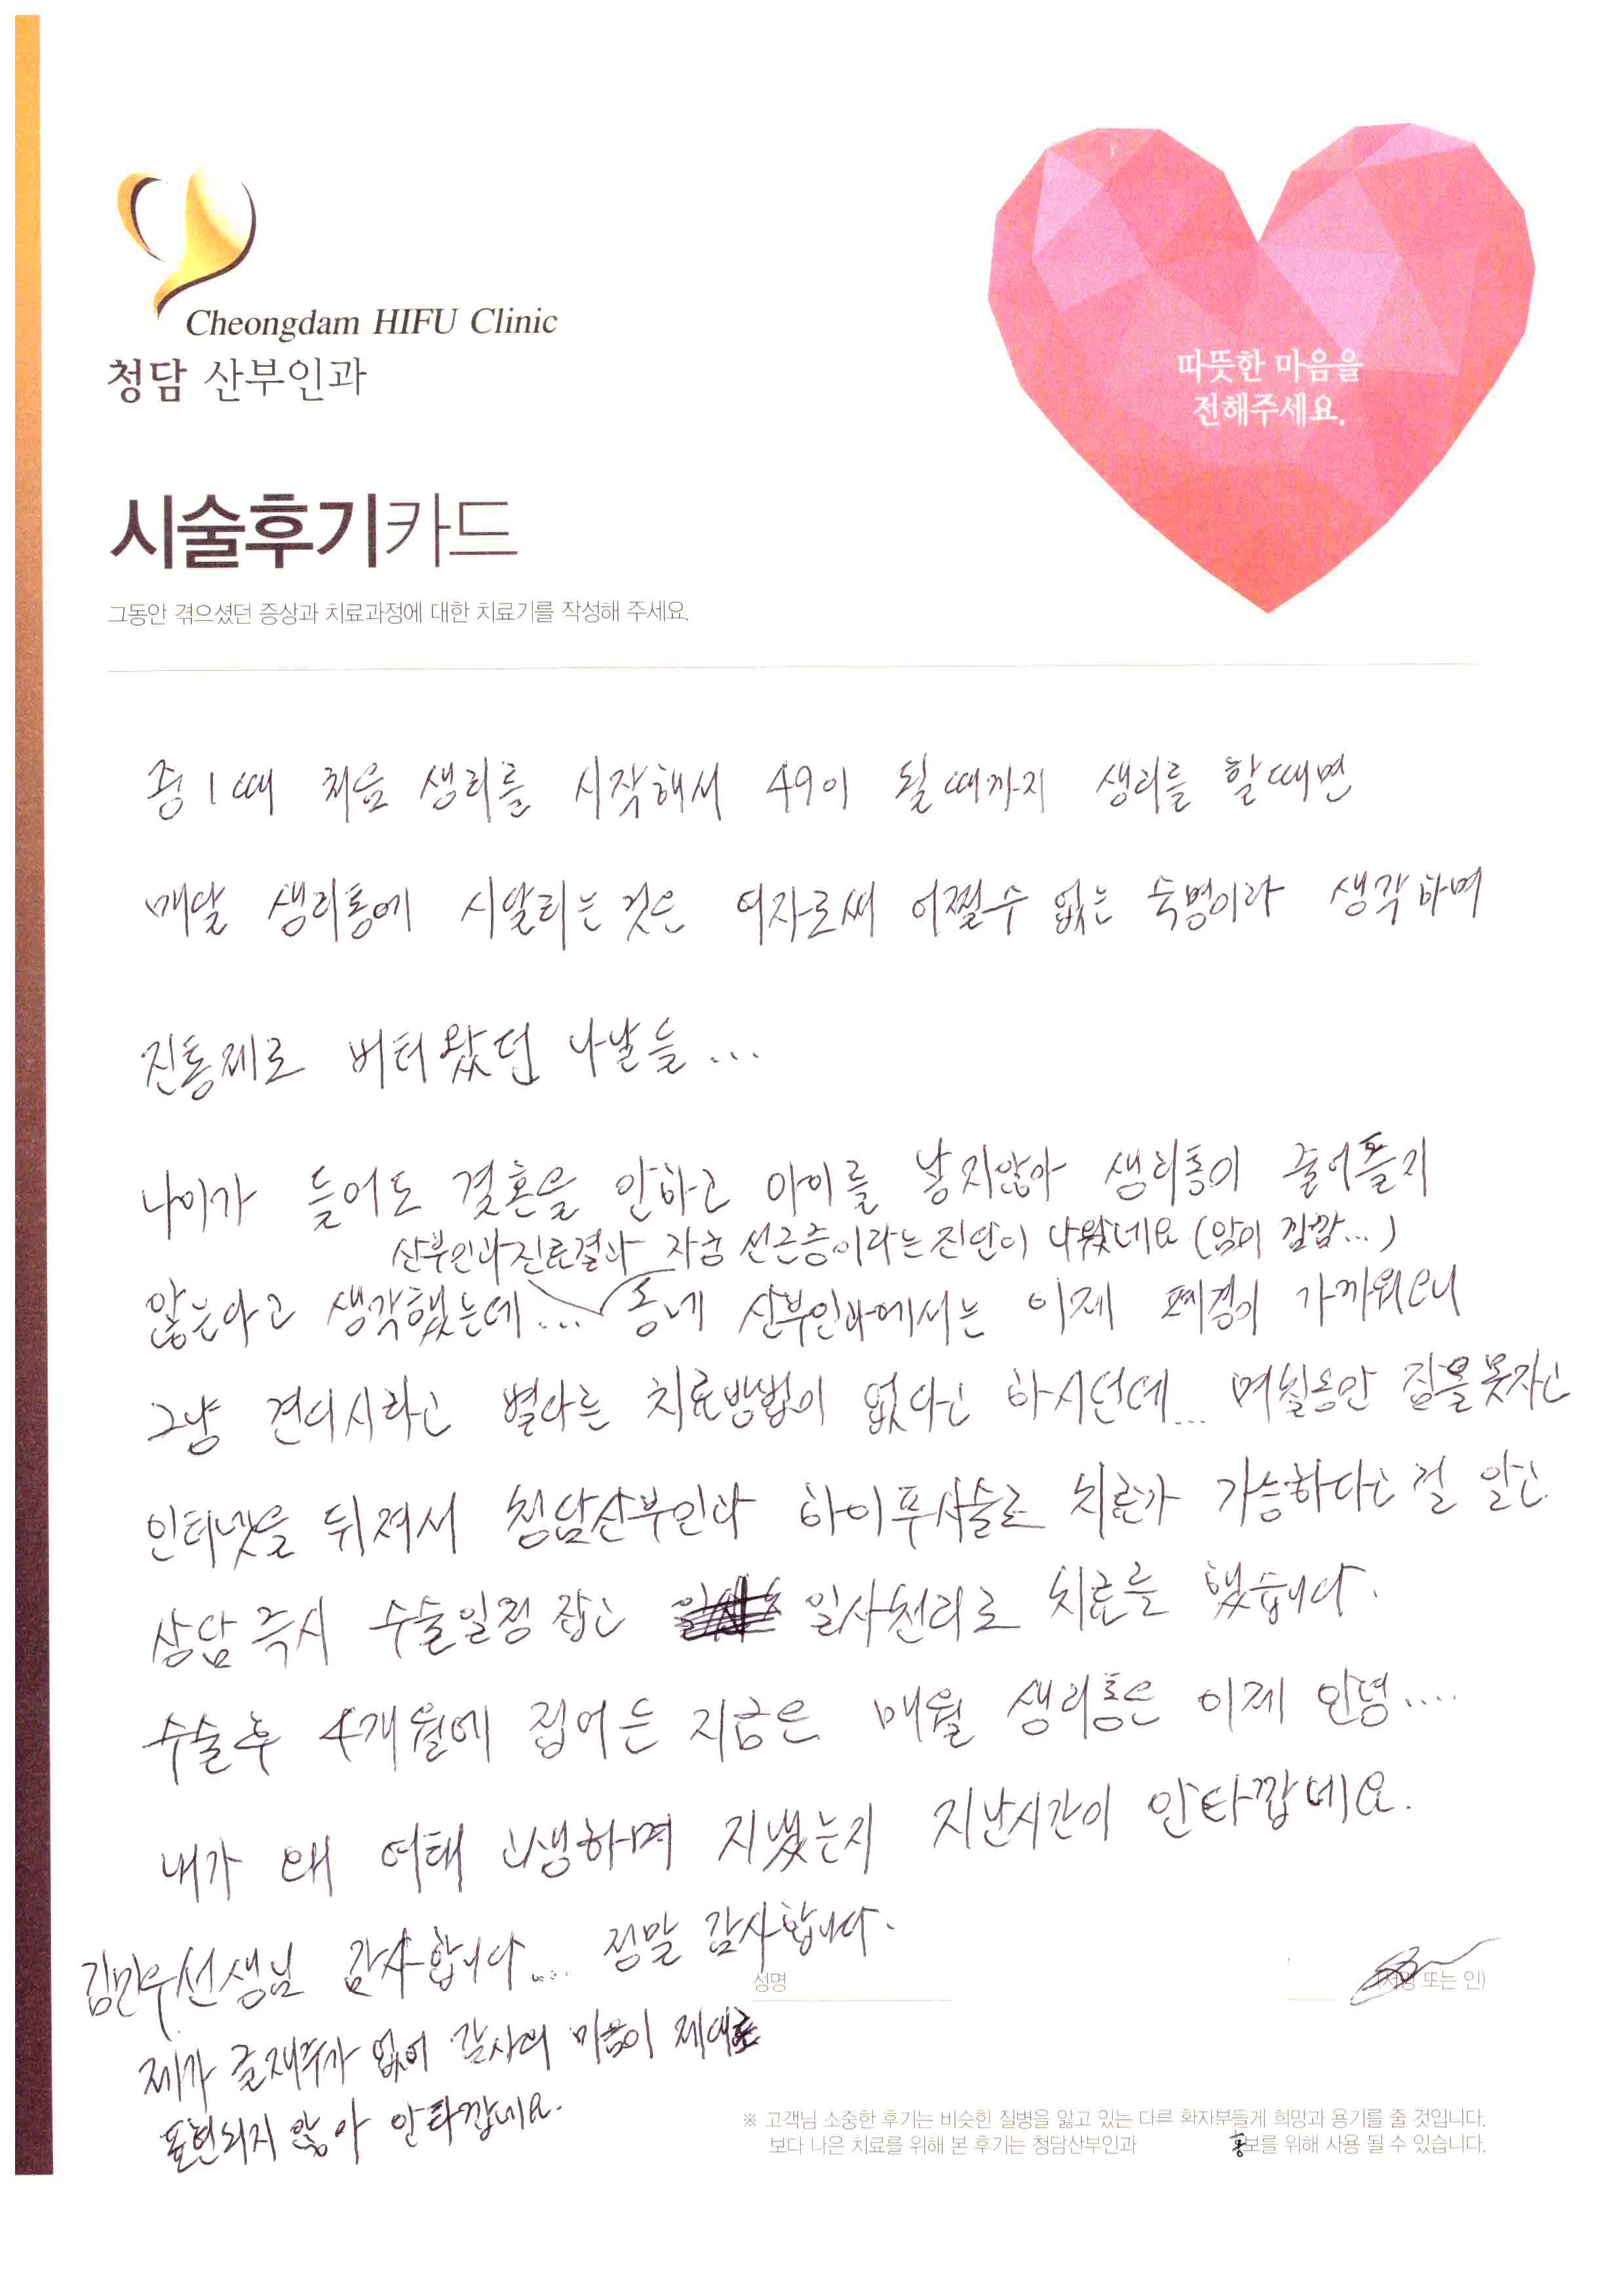 Cheongdam HIFU Clinic
청담 산부인과
따뜻한 마음을
전해주세요.
시술후기카드
그동안 겪으셨던 증상과 치료과정에 대한 치료기를 작성해 주세요.
중1때 처음 생리를 시작해서 49이 될때까지 생리를 할때면
매달 생리통에 시달리는것은 여자로써 어쩔수 없는 숙명이라 생각하며
진통제로 버텨왔던 나날들...
나이가 들어도 결혼을 안하고 아이를 낳지않아 생리통이 줄어들지
산부인과진료결과 자궁 선근증이라는진단이 나왔네요 (앞이 깜깜...)
않는다고 생각했는데... 동네 산부인과에서는 이제 폐경이 가까워오니
그냥 견디시라고 별다른 치료방법이 없다고 하시던데... 며칠동안 잠을못자고
인터넷을 뒤져서 청담산부인과 하이푸시술로 치료가 가능하다는걸 알고
상담즉시 수술일정잡고 일사천리로 치료를 했습니다.
수술후 4개월에 접어든 지금은 매월 생리통은 이제 안녕....
내가 왜 여태 고생하며 지냈는지 지난시간이 안타깝네요.
김민우선생님 감사합니다.... 정말 감사합니다.
성명
(서명 또는 인)
제가 글재주가 없어 감사의 마음이 제대로
표현되지 않아 안타깝네요.
※ 고객님 소중한 후기는 비슷힌 질병을 앓고 있는 다르 화자분들게 희망과 용기를 줄 것입니다.
보다 나은 치료를 위해 본 후기는 청담산부인과 홍보를 위해 사용 될 수 있습니다.